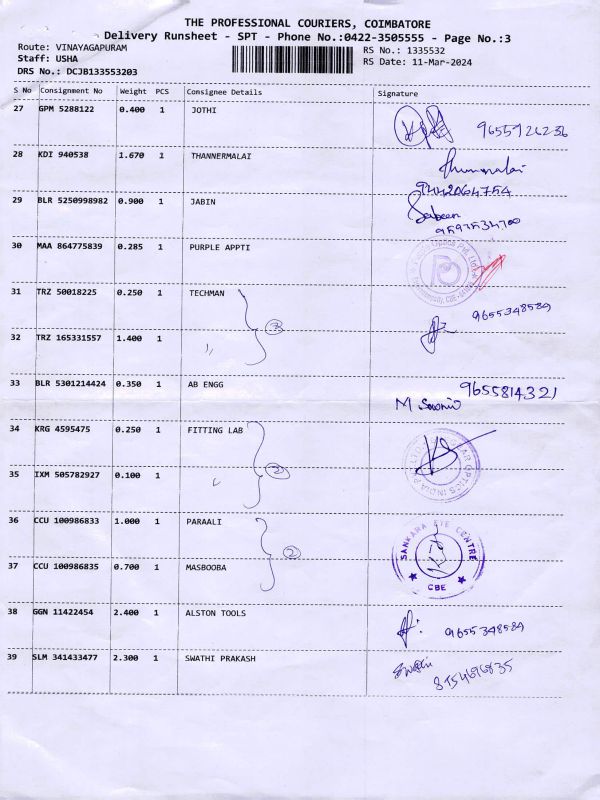 THE PROFESSIONAL COURIERS, COIMBATORE
Delivery Runsheet - SPT - Phone No.:0422-3505555 - Page No.:3
Route: VINAYAGAPURAM
Staff: USHA
DRS No.: DCJB133553203
RS No.: 1335532
RS Date: 11-Mar-2024
S No Consignment No Weight PCS Consignee Details Signature
27 GPM 5288122 0.400 1 JOTHI
28 KDI 940538 1.670 1 THANNERMALAI
29 BLR 5250998982 0.900 1 JABIN
30 MAA 864775839 0.285 1 PURPLE APPTI
31 TRZ 50018225 0.250 1 TECHMAN
9655348589
32 TRZ 165331557 1.400 1 "
33 BLR 5301214424 0.350 1 AB ENGG
9655814321
34 KRG 4595475 0.250 1 FITTING LAB
35 IXM 505782927 0.100 1 "
36 CCU 100986833 1.000 1 PARAALI
SANKARA EYE CENTRE
CBE
37 CCU 100986835 0.700 1 MASBOOBA
38 GGN 11422454 2.400 1 ALSTON TOOLS
9655348589
39 SLM 341433477 2.300 1 SWATHI PRAKASH
Swathi
8754696835